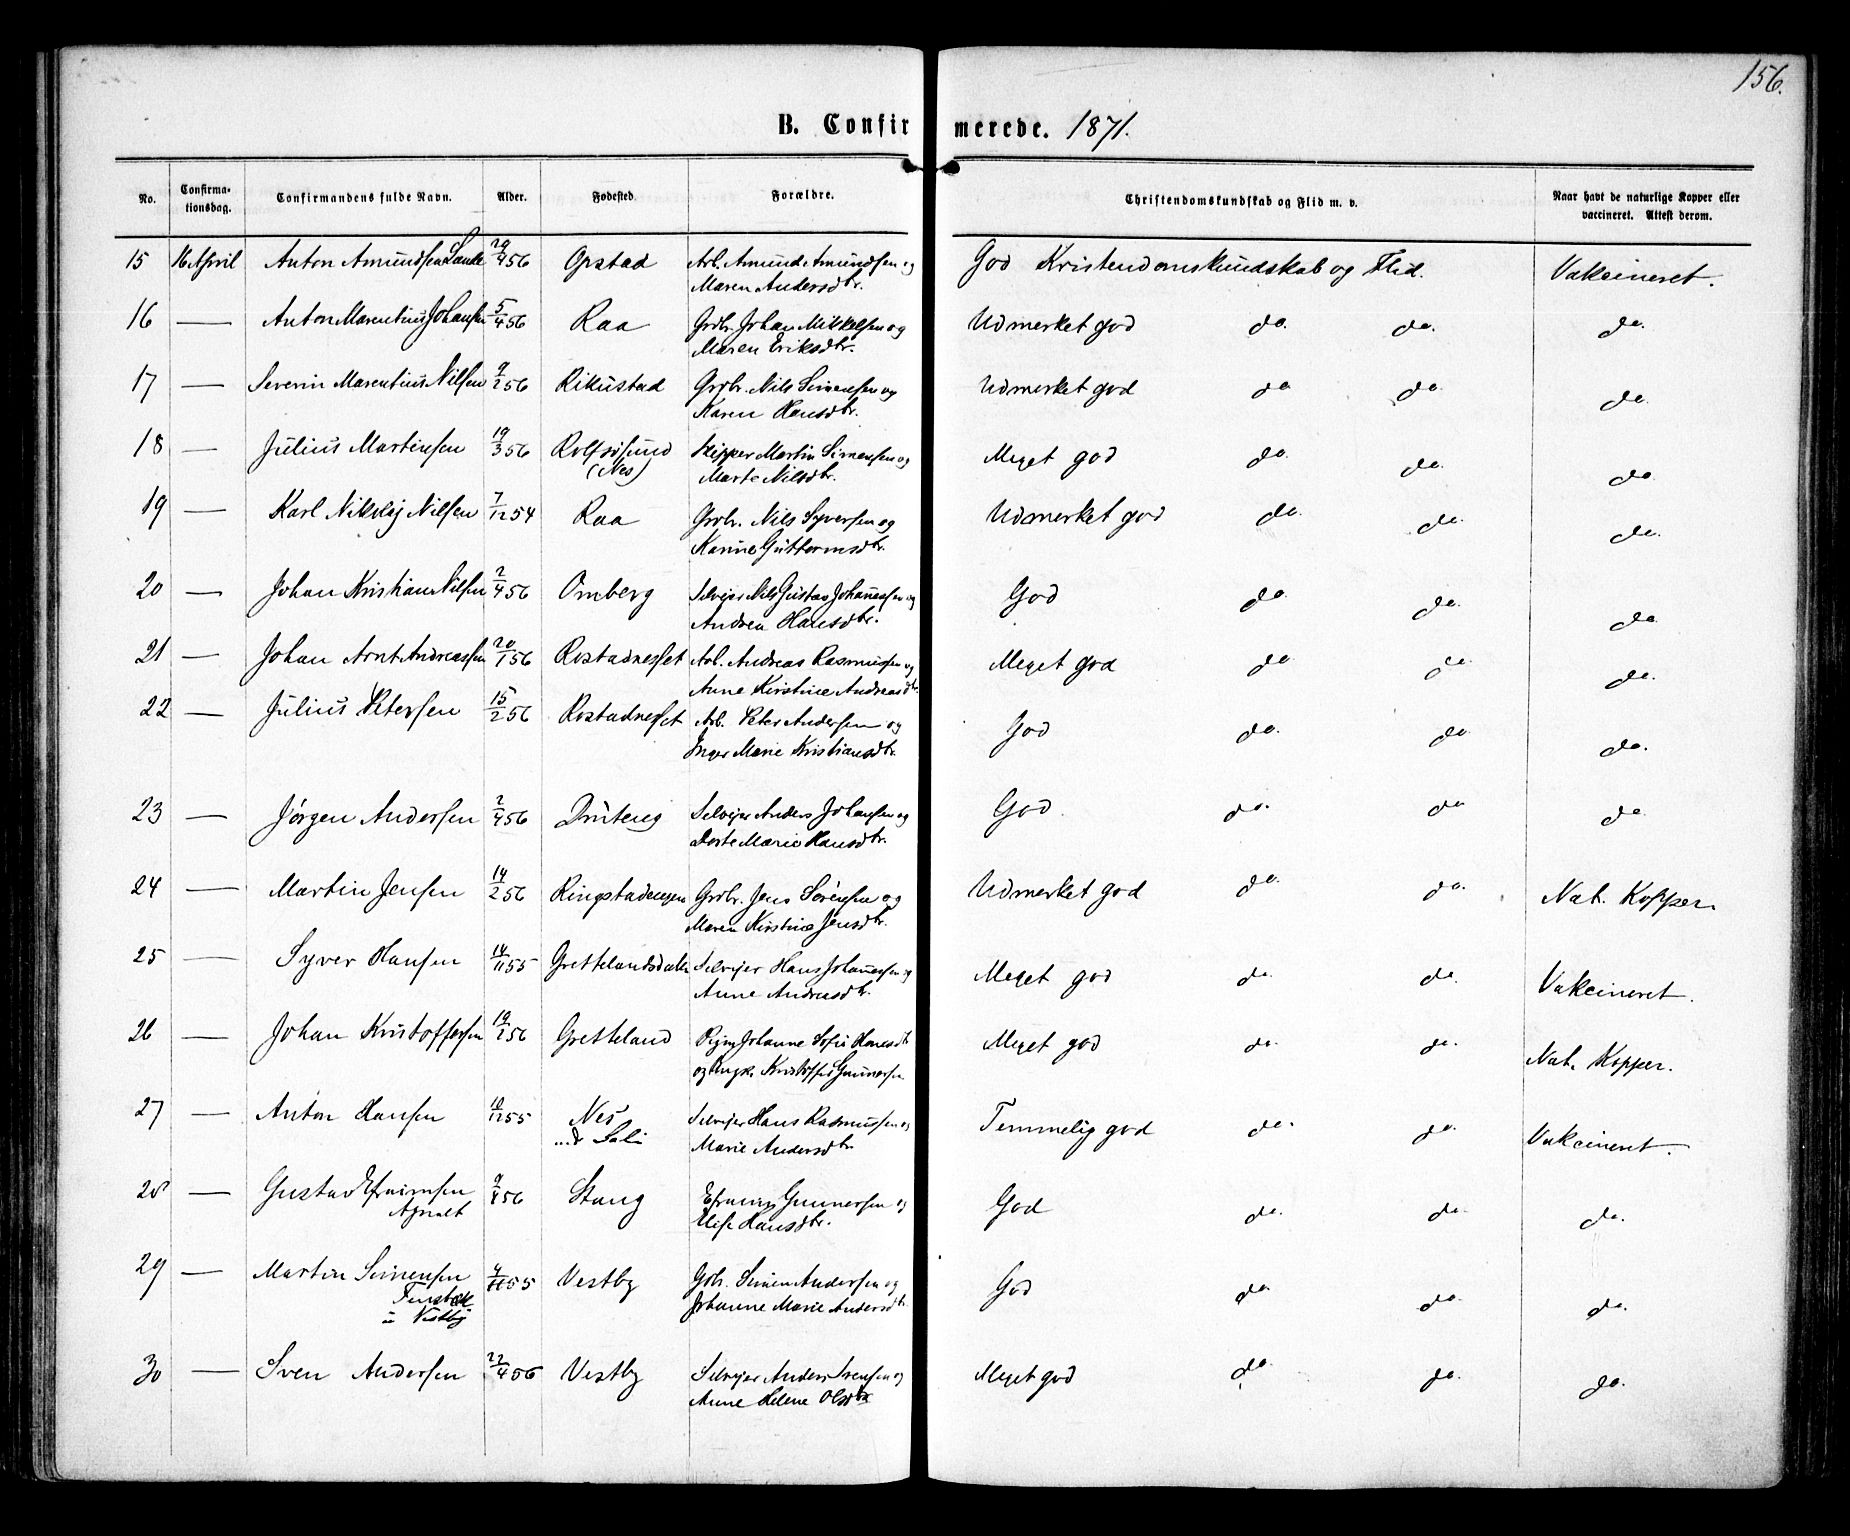 156.
B. Confirmerede. 1871.
No. Confirmationsdag. Confirmandens fulde Navn. Alder. Fødested Forældre. Christendomskundskab og Flid m. v. Naar havt de naturlige Kopper eller vaccineret. Attest derom.
15 16 April Anton Amundsen 56 Opstad Arb. Amund Amundsen og God Kristendomskundskab og Flid. Vakcineret.
Maren Andersdtr.
16 — Anton Marentius Johansen 5/4 56 Raa Grdbr. Johan Mikkelsen og Udmerket god do. do. do.
Maren Eriksdtr.
17 — Severin Marentius Nilsen 9/2 56 Rikustad Grdbr. Nils Simensen og Udmerket god do do. do.
Karen Hansdtr.
18 — Julius Martinsen 19/3 56 Rolfsösund Skipper Martin Simensen og Meget god do. do. do.
(Nes) Marte Nilsdtr.
19 — Karl Nikolaj Nilsen 7/12 54 Raa Grdbr. Nils Syversen og Udmerket god do. do. do.
Karine Guttormsdtr.
20 — Johan Kristian Nilsen 2/4 56 Omberg Selvejer Nils Gustav Johannesen og God do. do. do.
Andrea Hansdtr.
21 — Johan Arnt Andreassen 20/1 56 Rostadnesset Arb. Andreas Rasmussen og Meget god do do. do.
Anne Kirstine Andreasdtr.
22 — Julius Petersen 15/2 56 Rostadnesset Arb. Peter Andersen og God do. do. do.
Inger Marie Kristiansdtr.
23 — Jörgen Andersen 2/4 56 Selvejer Anders Johansen og God. do. do do.
Dorte Marie Hansdtr.
24 — Martin Jensen 14/2 56 Ringstadengen Grdbr. Jens Sörensen og Udmerket god do. do. Nat. Kopper.
Maren Kirstine Jensdtr.
25 — Syver Hansen 14/11 55 Selvejer Hans Johannessen og Meget god do. do. Vakcineret.
Anne Andreasdtr.
26 — Johan Kristoffersen 19/1 56 Gretteland Pigen Johanne Sofie Hansdtr Meget god do. do. Nat. Kopper.
og Ungk. Kristoffer Gunnersen
27 — Anton Hansen 55 Nes Selvejer Hans Rasmussen og Temmelig god do. do. Vakcineret.
Marie Andersdtr
28 — Gustav Efraimsen 9/4 56 Stang Efraim Gunnersen og God do. do. do.
Agnalt Elise Hansdtr.
29 — Martin Simensen 4/11 55 Vestby Gbr. Simen Andersen og God do. do. do.
Johanne Marie Andersdtr.
u Vestby
30 — Sven Andersen 22/4 56 Vestby Selvejer Anders Svensen og Meget god do. do. do.
Anne Helene Olsdtr